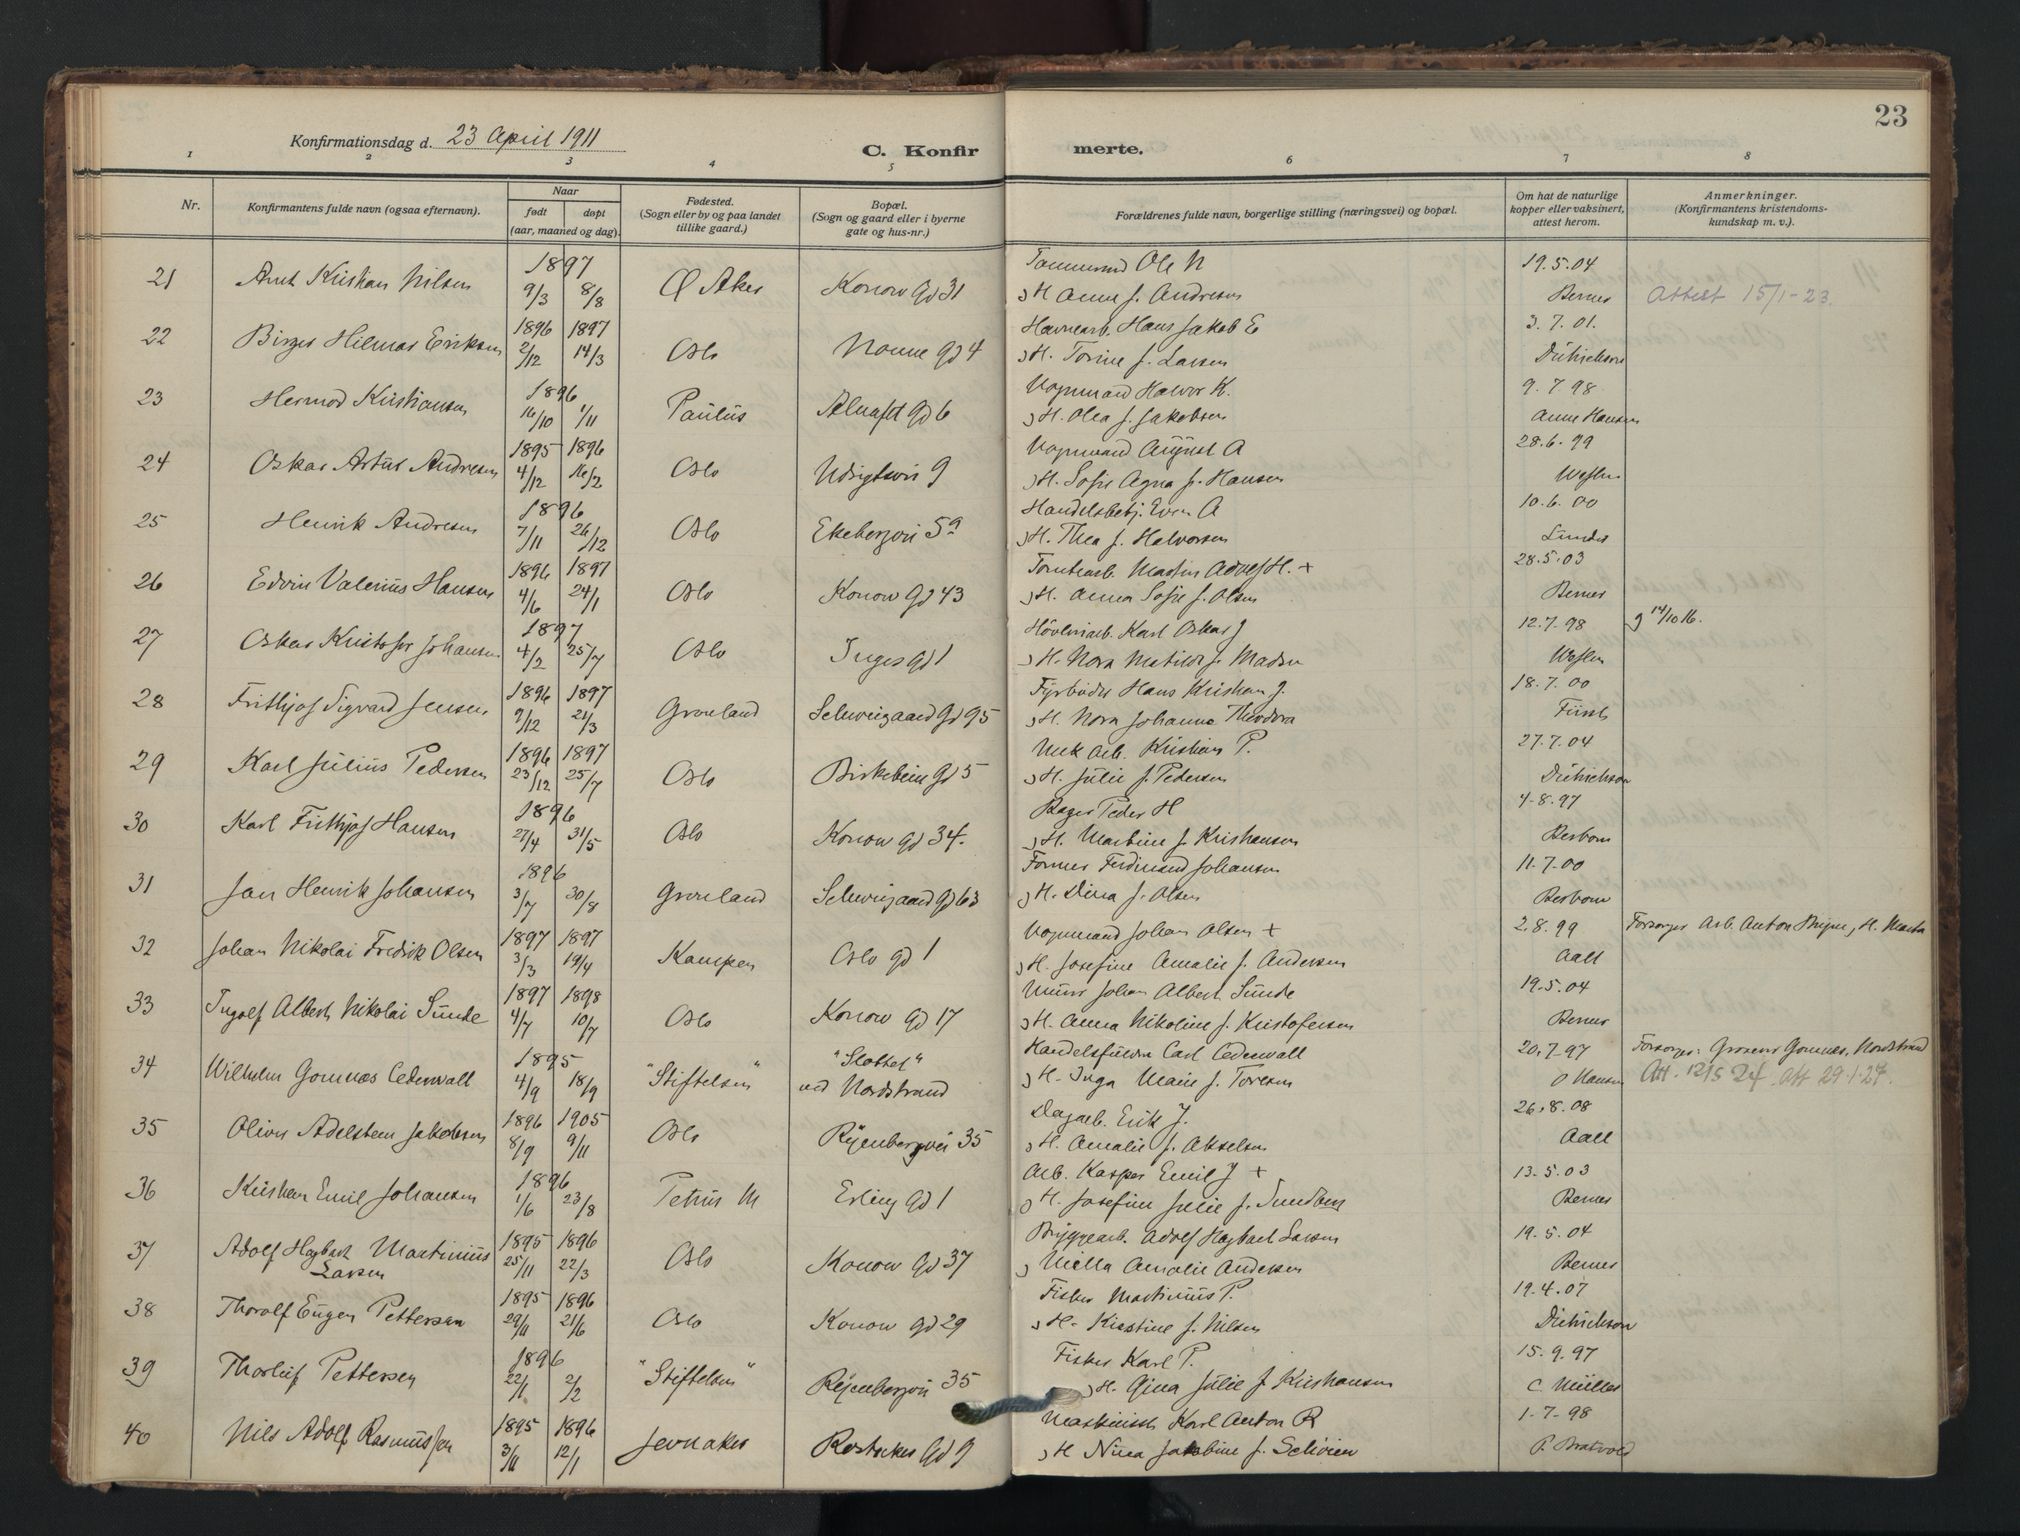 23
Konfirmationsdag d. 23 April 1911
C. Konfirmerte.
1 2 3 4 5 6 7 8
Nr.
Konfirmantens fulde navn (ogsaa efternavn).
Naar
født døpt
(aar, maaned og dag).
Fødested.
(Sogn eller by og paa landet
tillike gaard.)
Bopæl.
(Sogn og gaard eller i byerne
gate og hus-nr.)
Forældrenes fulde navn, borgerlige stilling (næringsvei) og bopæl.
Om hat de naturlige
kopper eller vaksinert,
attest herom.
Anmerkninger.
(Konfirmantens kristendoms-
kundskap m. v.).
1897 Ole N 19.5.04
21 Arnt Kristian Nilsen 9/3 8/8 Ø Aker Konow Gd 31 H Anne f. Andresen Berner Attest 15/1-23.
1896 1897 Havnearb. Hans Jakob E 3.7.01.
22 Birger Hilmar Eriksen 2/12 14/3 Oslo Nonne gd 4 H. Torine f. Larsen Ditrichson
1896 Vognmand Halvor K. 9.7.98
23 Hermod Kristiansen 16/10 1/11 Paulus gd 6 H. Olea f. Jakobsen Anne Hansen
1895 1896 Vognmand August A 28.6.99
24 Oskar Artur Andresen 4/12 16/2 Oslo Udsigtsvei 9 H. Sofie Agna f. Hansen
1896 Handelsbetj. Even A 10.6.00
25 Henrik Andresen 7/11 26/12 Oslo Ekebergvei 5a H. Thea f. Halvorsen Lunder
1896 1897 Tomtearb. Martin Adolf H. + 28.5.03
26 Edvin Valerius Hansen 4/6 24/1 Oslo Konow Gd 43 H. Anna Sofie f. Olsen Berner
1897 Høvleriarb. Karl Oskar J 12.7.98 g 14/10 16.
27 Oskar Kristofer Johansen 4/2 25/7 Oslo Inges gd 1 H. Nora Matilde f. Madsen
1896 1897 Fyrbøder Hans Kristian J. 18.7.00
28 Frithjof Sigvard Jensen 9/12 21/3 Grønland Schweigaard Gd 95 H. Nora Johanne Theodora Fürst
1896 1897 Mek arb. Kristian P. 27.7.04
29 Karl Julius Pedersen 23/12 25/7 Oslo Birkebein Gd 5 H. Julie f. Pedersen Ditrichson
1896 Bager Peder H 4-8.97
30 Karl Frithjof Hansen 27/4 31/5 Oslo Konow gd 34. H. Martine f. Kristiansen Berbom
1896 Former Ferdinand Johansen 11.7.00
31 Jan Henrik Johansen 3/7 30/8 Grønland Schweigaard Gd 63 H. Dina f. Olsen Berbom
1897 1897 Vognmand Johan Olsen + 2.8.99 Forsørger Arb. Anton, H. Marta
32 Johan Nikolai Fredrik Olsen 3/3 19/4 Kampen Oslo gd 1 H. Josefine Amalie f. Andersen Aall
1897 1898 Murer Johan Albert Sunde 19.5.04
33 Ingolf Albert Nikolai Sunde 4/7 10/7 Oslo Konow gd 17 H. Anna Nikoline f. Kristofersen Berner
1895 "Slottet" Handelsfuldm Carl Cedervall 20.7-97 Forsørger: Grosserer Gomnæs, Nordstrand
34 Wilhelm Gomnæs Cedervall 4/9 18/9 "Stiftelsen" ved Nordstrand H. Inga Marie f. Toresen O Hansen Att. 12/5 24. Att 29.1.27.
1896 1905 Dagarb. Erik J. 26.8.08
35 Oliver Adelsten Jakobsen 8/9 9/11 Oslo Ryenbergvei 35 H. Amalie f. Akselsen Aall
1896 Arb. Kasper Emil J + 13.5.03
36 Kristian Emil Johansen 1/6 23/8 Petrus M Erling gd 1 H. Josefine Julie f. Sundberg Berner
1895 1896 Bryggearb. Adolf Hagbart Larsen 19.5.04
37 Adolf Hagbart Martinius
Larsen 25/11 22/3 Oslo Konow Gd 37 Milla Amalie Andersen Berner
1895 1896 Fisker Martinius P. 19.4.07
38 Thorolf Eugen Pettersen 29/11 21/6 Oslo Konow gd 29 H. Kirstine f. Nilsen Ditrichson
1896 Fisker Karl P. 15.9.97
39 Thorleif Pettersen 22/1 2/2 "Stiftelsen" Ryenbergvei 35 H. Gina Julie f. Kristiansen C. Müller
1895 1896 Maskinist Karl Anton R 1-7-98
40 Nils Adolf Rasmussen 3/11 12/1 Jevnaker Rostocker Gd 9 H Nina Jakobine f. P. Bratvold